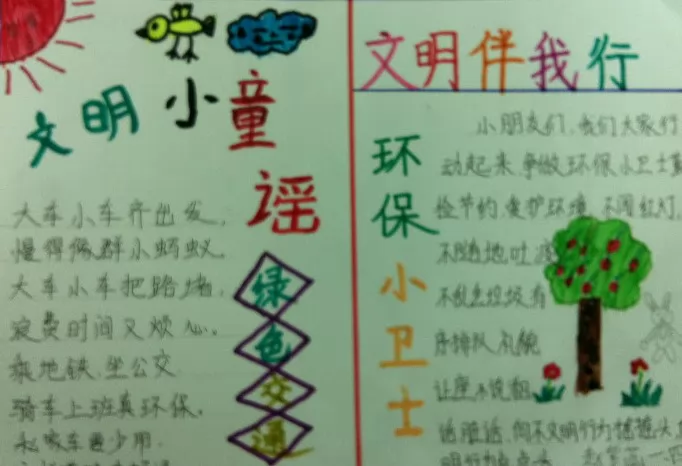 文明小童谣
大车小车齐出发,
慢得像群小蚂蚁。
大车小车把路堵,
浪费时间又烦心。
乘地铁,坐公交
骑车上班真环保。
私家车要少用,
绿色交通
文明伴我行
环保小卫士
小朋友们,我们大家行
动起来,争做环保小卫士
俭节约,爱护环境,不闯红灯,
不随地吐
不乱丢垃圾,有
序排队,礼貌
让座,不说粗
话脏话,向不文明行为摇摇头
明行为点点头